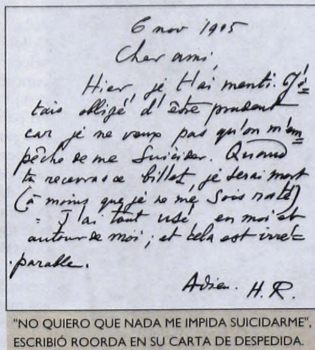 6 nov 1925
Cher ami,
Hier, je t'ai menti. J'é=
tais obligé d'être prudent
car je ne veux pas qu'on m'em
pêche de me suicider. Quand
tu recevras ce billet, je serai mort
(à moins que je ne me sois raté)
- J'ai tout usé en moi et
autour de moi ; et cela est irré=
parable.
Adieu. H.R.
"NO QUIERO QUE NADA ME IMPIDA SUICIDARME",
ESCRIBIÓ ROORDA EN SU CARTA DE DESPEDIDA.